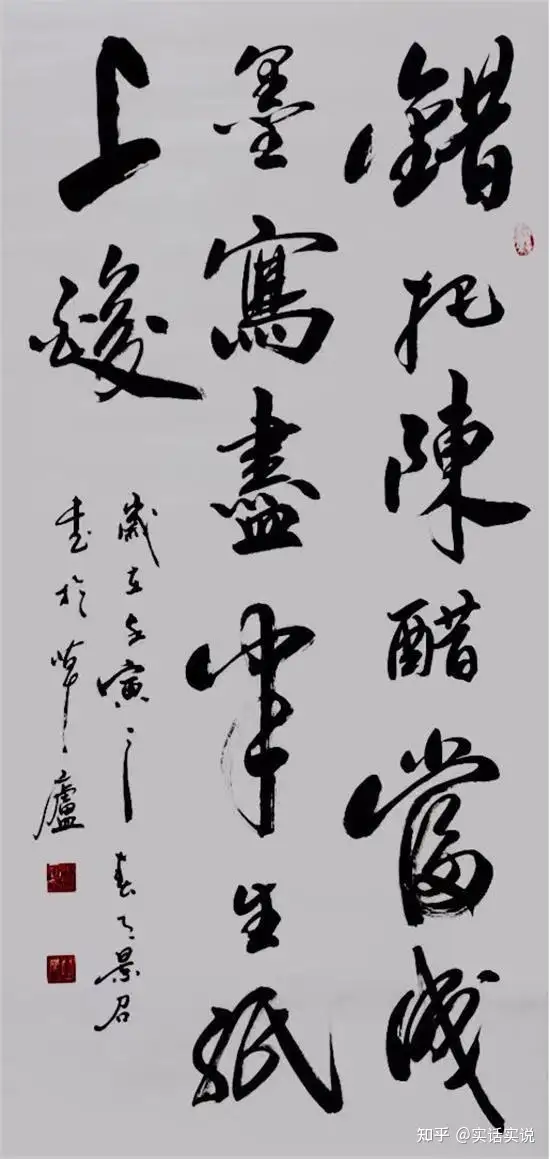 錯把陳醋當成
墨寫盡半生紙
上酸
歲在壬寅之春景召
書於草廬
知乎 @实话实说